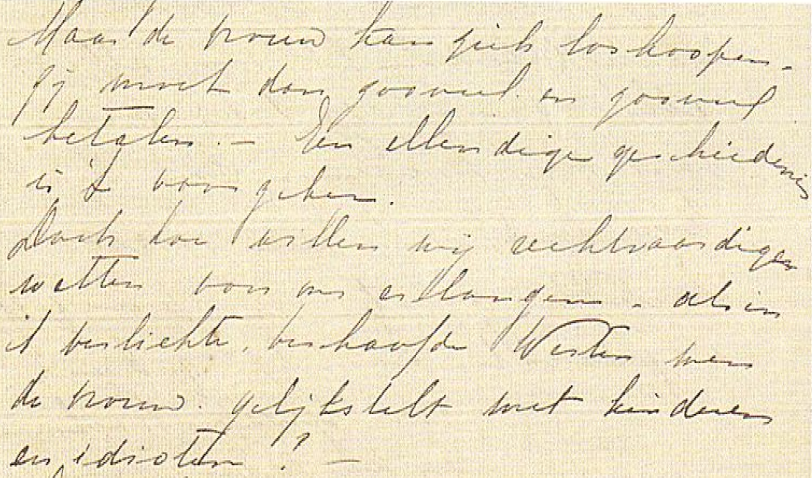 Maar de vrouw kan zich loskoopen.
Zij moet dan zooveel en zooveel
betalen. — Een ellendige geschiedenis
is 't voor
Doch hoe willen wij rechtvaardiger
wetten voor ons erlangen - als in
't verlichte, beschaafde Westen men
de vrouw gelijkstelt met kinderen
en idioten! —